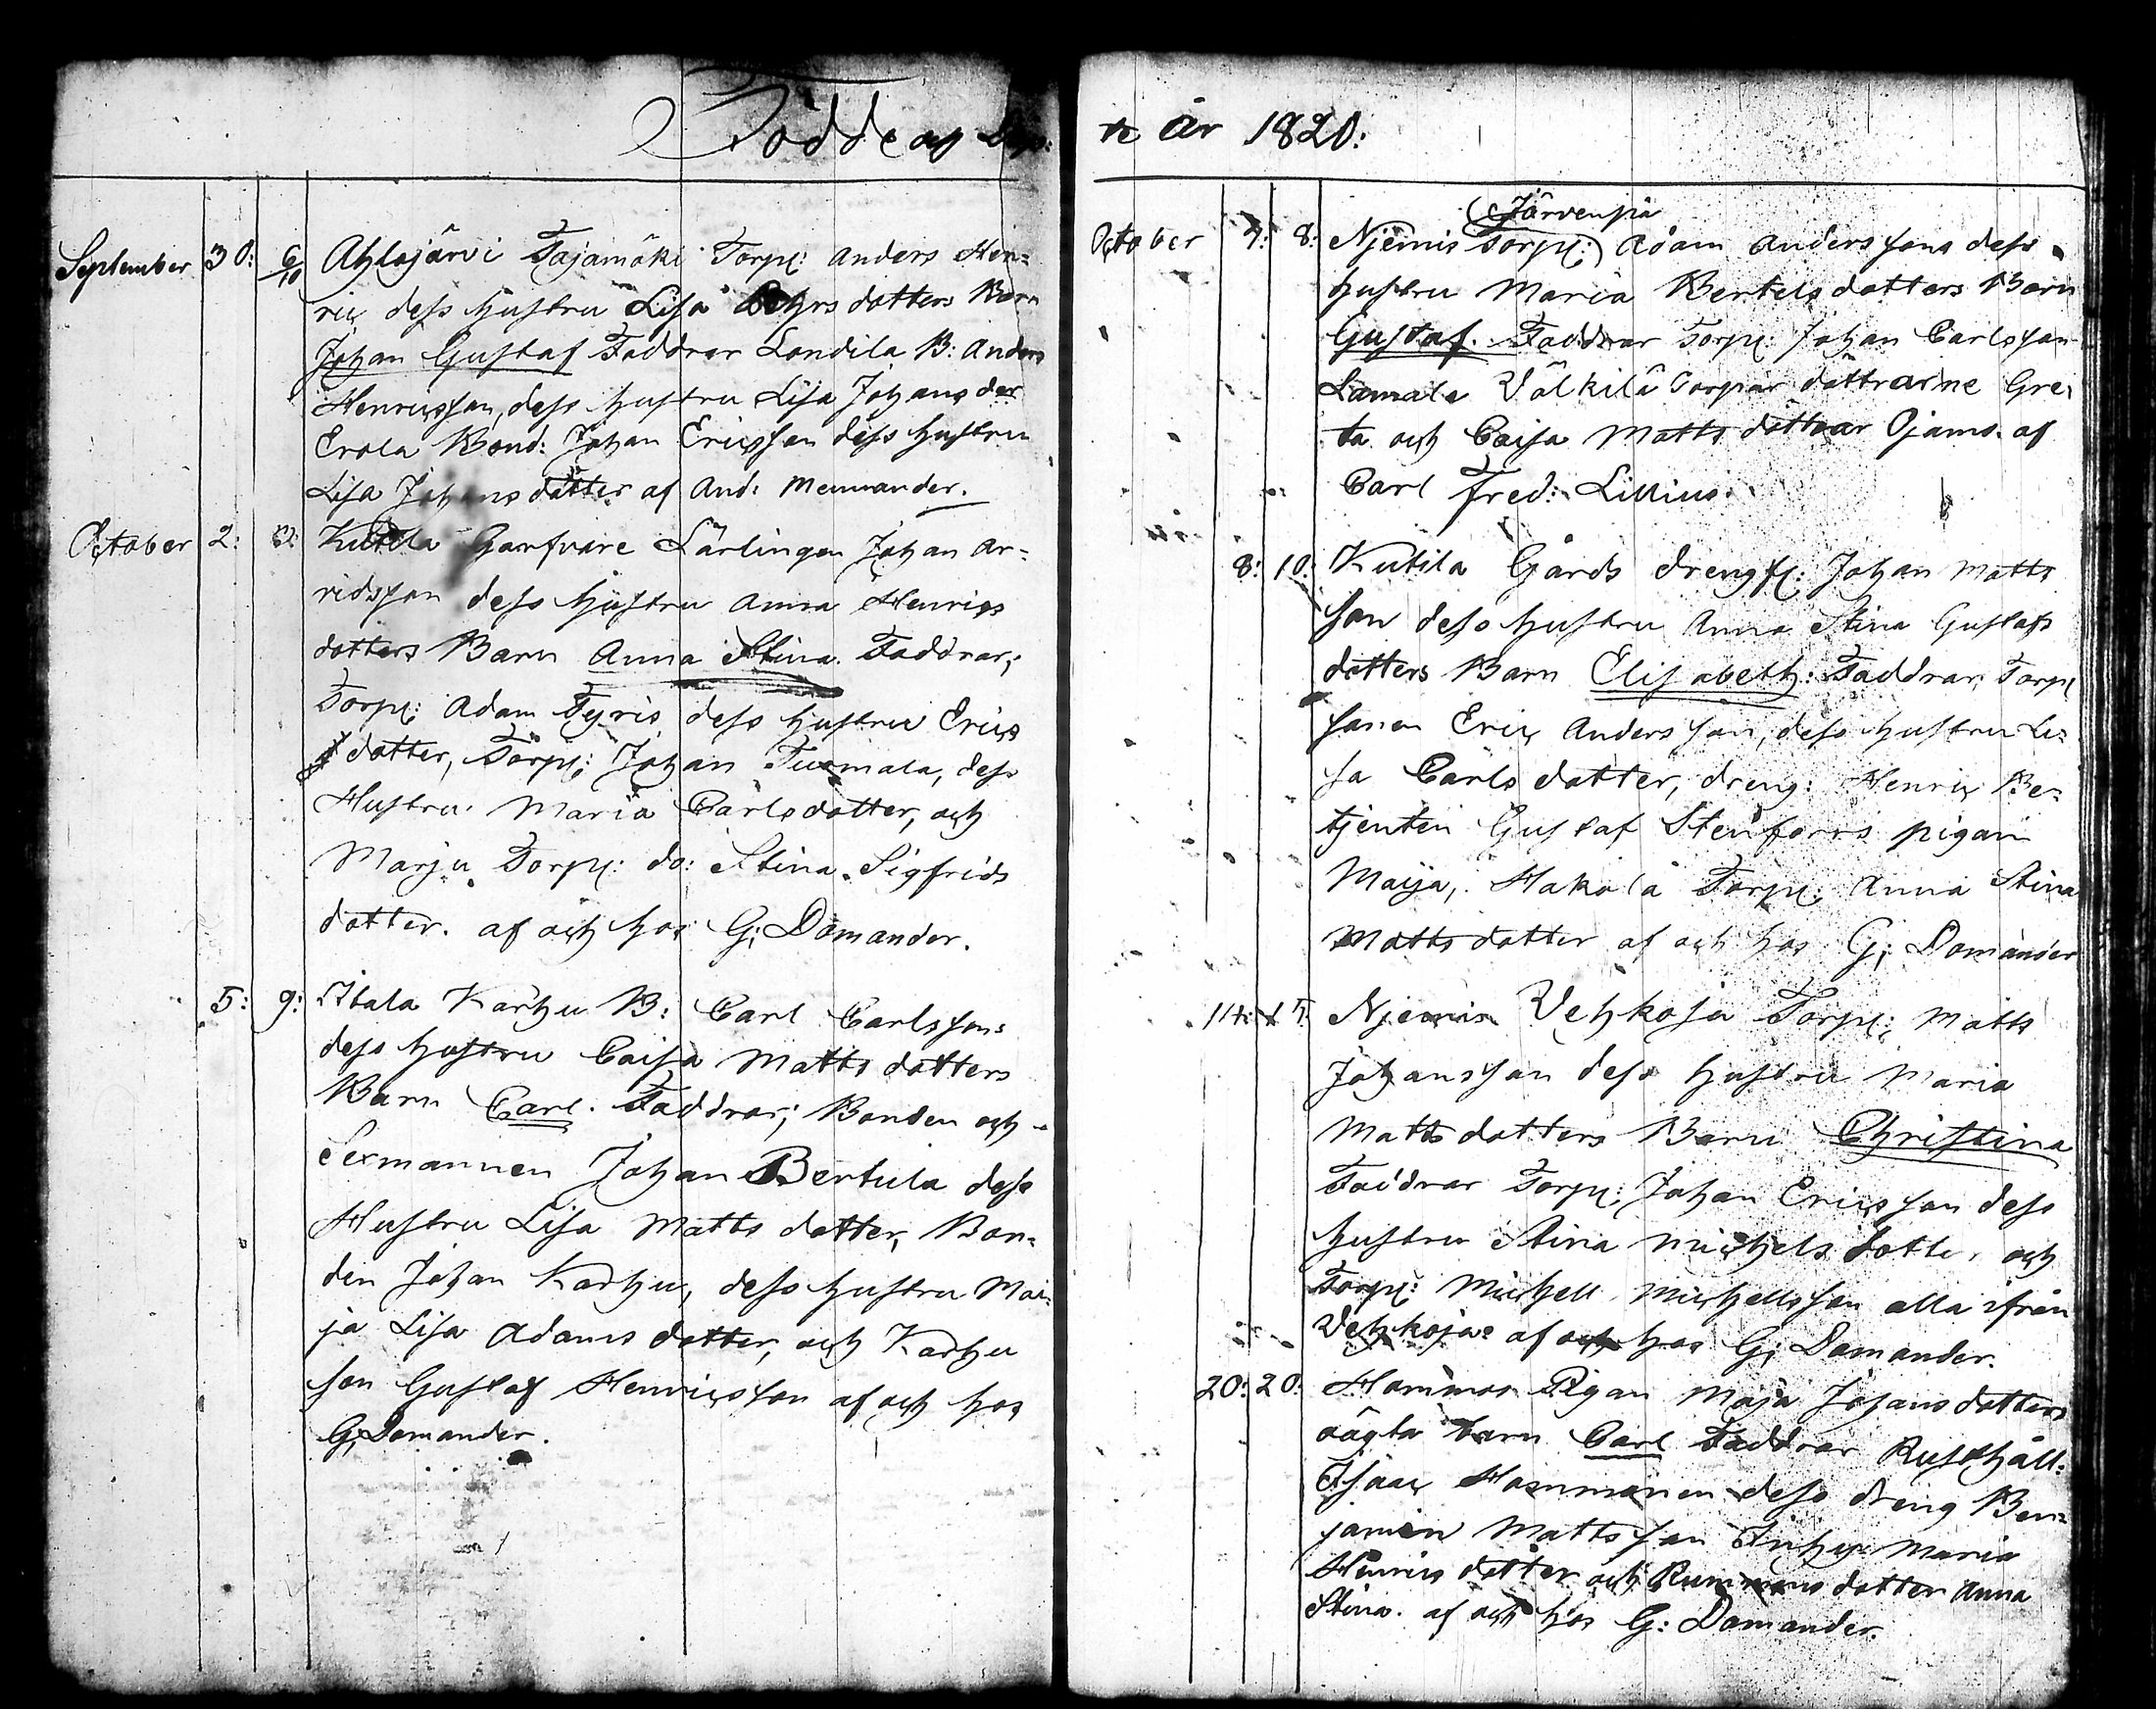 Födde og Döp:
te år 1820:
September 30: 6/10 Ahlajärvi Tajamäki Torp: Anders Hen-
ric dess hustru Lisa dotters Barn
Johan Gustaf Faddrar Londila B: Anders
Henricsson, dess hustru Lisa Johans der
Erola Bond: Johan Ericsson dess hustru
Lisa Johans dotter af And: Mennander.
October 2: 3: Kutila Garfvare Lärlingen Johan Ar-
vidsson dess hustru Anna Henrics
dotters Barn Anna Stina. Faddrar;
Torp: Adam Tyris dess hustru Erics
dotter, Torp: Johan Tuomala, dess
Hustru Maria Carlsdotter, och
Marju Torp: do: Stina Sigfrids
dotter. af och hos G: Domander.
5: 9: Itala Karhu B: Carl Carlssons
dess hustru Caisa Matts dotters
Barn Carl. Faddrar; Bonden och
Sexmannen Johan Bertula dess
Hustru Lisa Matts dotter, Bon-
den Johan Karhu, dess hustru Mai-
ja Lisa Adams dotter, och Karhu
son Gustaf Henricsson af och hos
G: Domander.
Järvenpä
October 7: 8: Njemis Torp: Adam Anderssons dess
hustru Maria Bertels dotters Barn
Gustaf. Faddrar Torp: Johan Carlsson
Lamala Välkilä Torpar döttrarne Gre-
ta och Caisa Matts döttrar Ojams. af
Carl Fred: Lillius.
8: 10: Kutila Gårds drengf: Johan Matts
son dess hustru Anna Stina Gustafs
dotters Barn Elisabeth: Faddrar: Torp
sonen Eric Andersson, dess hustru Li-
sa Carls dotter, dreng: Henric Be-
tjenten Gustaf Stenfors pigan
Maija, Hakola Torp: Anna Stina
Matts dotter af och hos G: Domander
14: 15: Njemis Vehkoja Torp: Matts
Johansson dess hustru Maria
Matts dotters Barn Christina
Faddrar Torp: Johan Ericsson dess
hustru Stina Michels dotter och
Torp: Michell Michellsson alla ifrån
Vehkoja: af och hos G: Domander.
20: 20: Hammos Pigan Maja Johans dotters
oägta barn Carl Faddrar Rusthåll:
Isaac Hammonen dess dreng Ben-
jamin Mattsson Inhys Maria
Henrics dotter och dotter Anna
Stina. af och hos G: Domander.